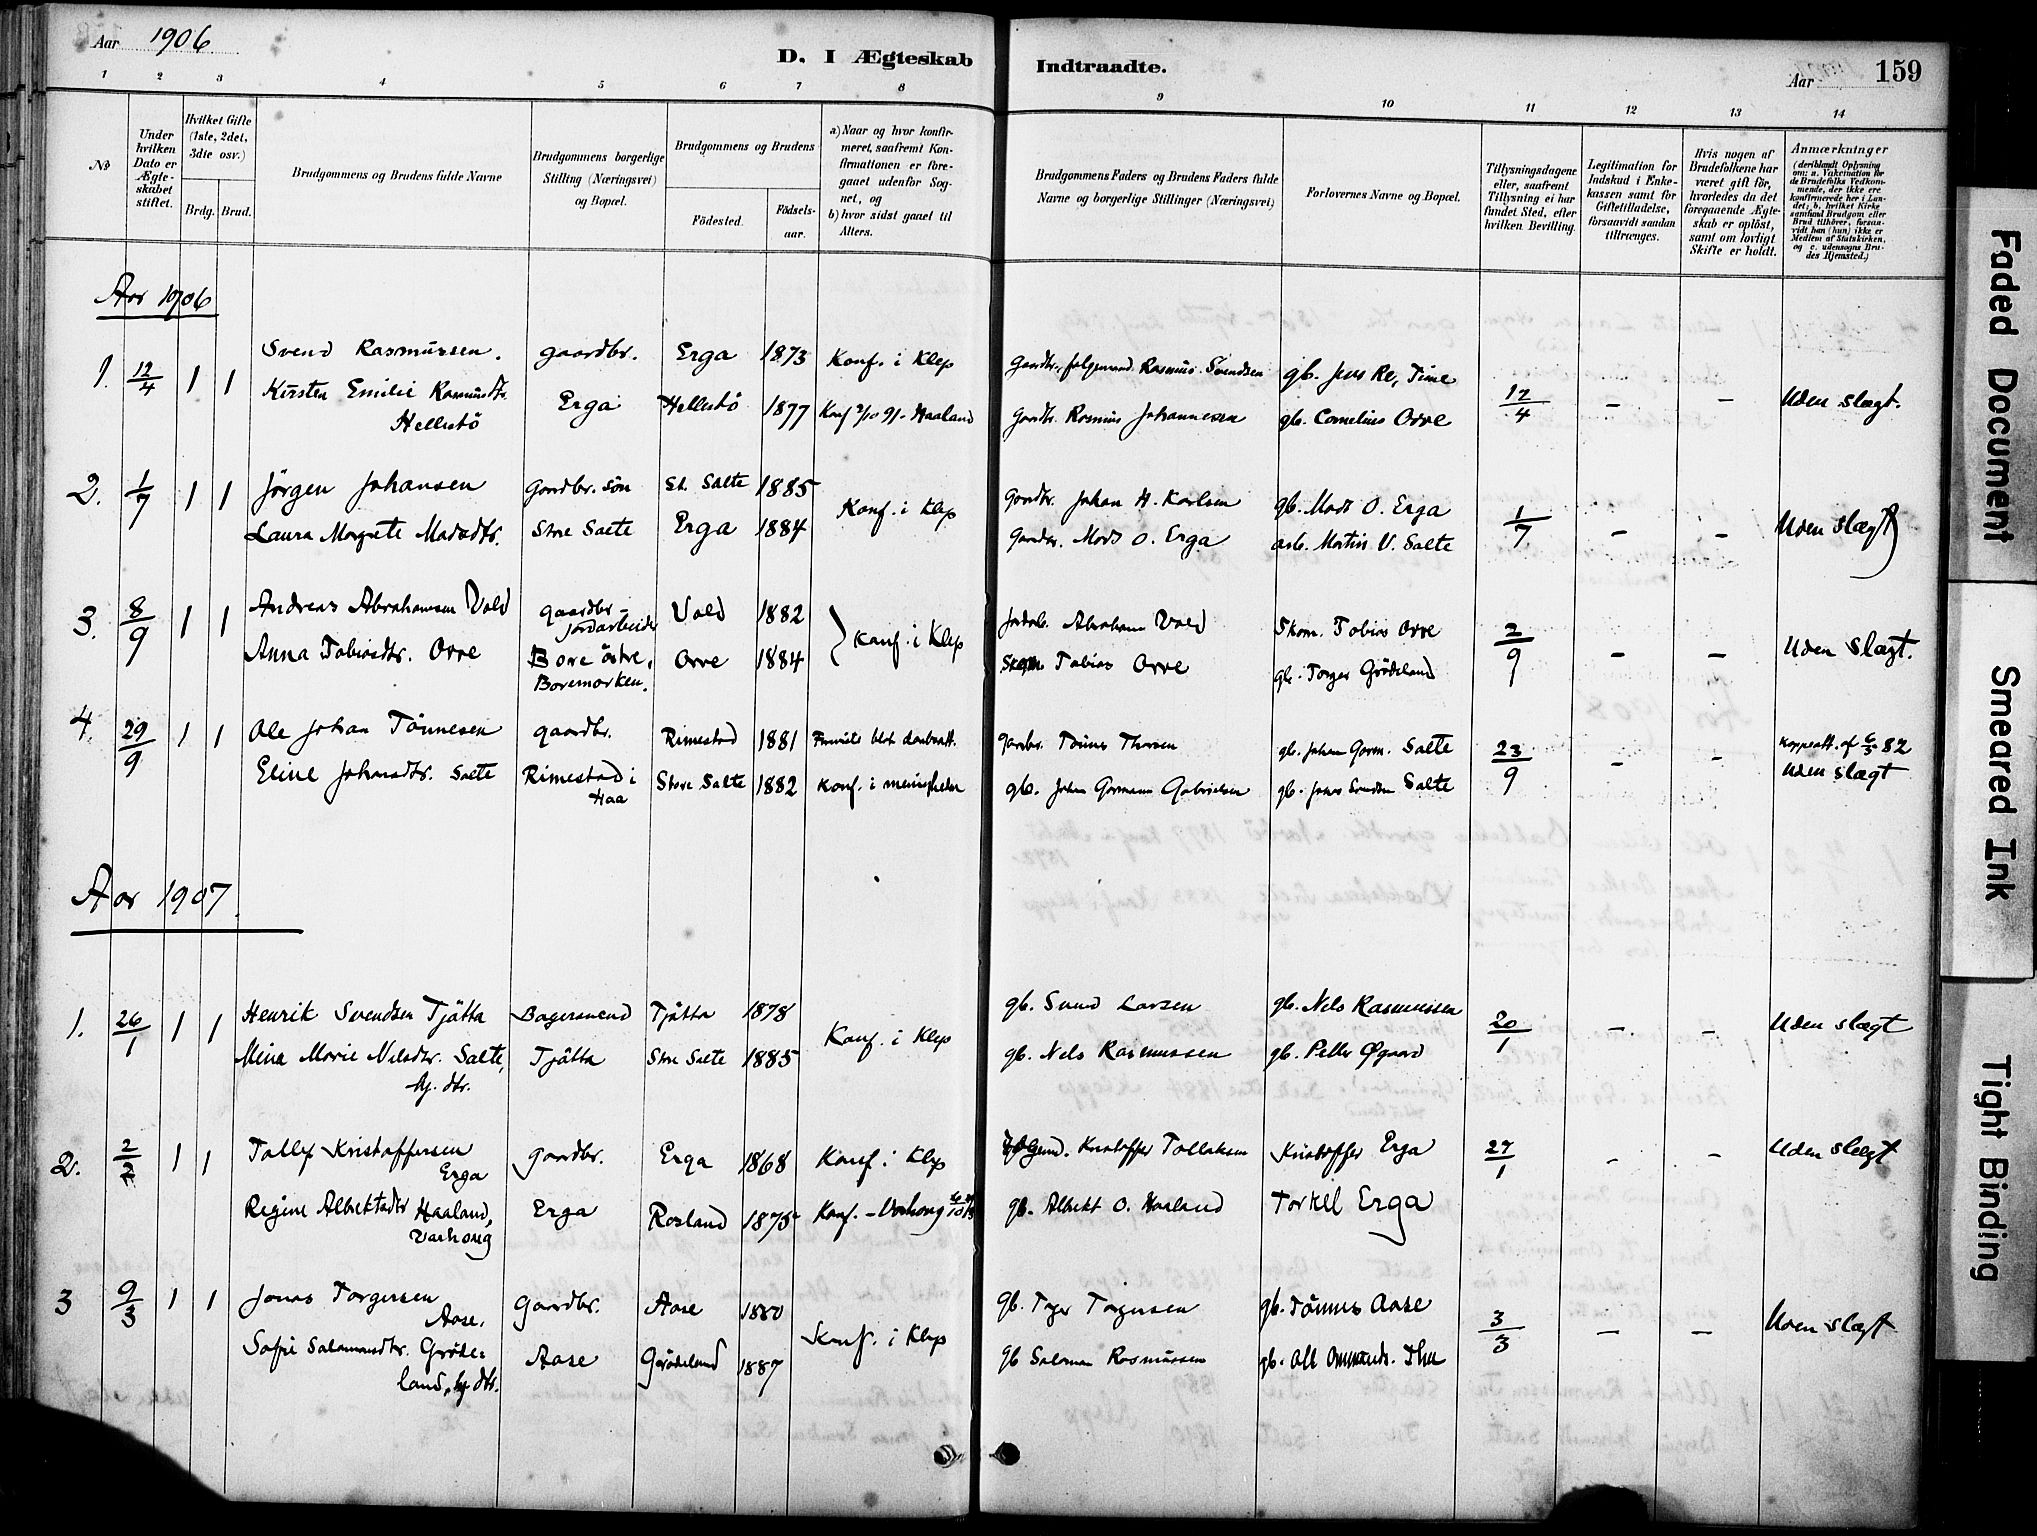 Aar 1906
D. I Ægteskab Indtraadte.
Aar 159
1 2 3 4 5 6 7 8 9 10 11 12 13 14
No
Under hvilken Dato er Ægteskabet stiftet.
Hvilket Gifte (1ste, 2det, 3die osv.)
Brdg. Brud.
Brudgommens og Brudens fulde Navne
Brudgommens borgerlige Stilling (Næringsvei) og Bopæl.
Brudgommens og Brudens
Födested.
Födselsaar.
a) Naar og hvor konfirmeret, saafremt Konfirmationen er foregaaet udenfor Sognet, og
b) hvor sidst gaaet til Alters.
Brudgommens Faders og Brudens Faders fulde Navne og borgerlige Stillinger (Næringsvei)
Forlovernes Navne og Bopæl.
Tillysningsdagene eller, saafremt Tillysning ei har fundet Sted, efter hvilken Bevilling.
Legitimation for Indskud i Enkekassen samt for Giftetilladelse, forsaavidt saadan tiltrænges.
Hvis nogen af Brudefolkene har været gift før, hvorledes da det foregaaende Ægteskab er oplöst, samt om lovligt Skifte er holdt.
Anmærkninger
(deriblandt Oplysning om: a. Vakcination for de Brudefolks Vedkommende, der ikke ere konfirmerede her i Landet; b. hvilket Kirkesamfund Brudgom eller Brud tilhörer, forsaavidt han (hun) ikke er Medlem af Statskirken, og c. udensogns Brudes Hjemsted.)
Aar 1906
1. 12/4 1 1 Svend Rasmussen. gaardbr. Erga 1873 Konf. i Klep Gaardbr. Rasmus Svendsen gb. Jens Re, Time 12/4 – – Uden slægt.
Kirsten Emilie Rasmusdtr. Hellestö Erga Hellestö 1877 Konf 2/10 91 - Haaland Gaardbr. Rasmus Johannesen gb. Cornelius Orre
2. 1/7 1 1 Jörgen Johansen Gaardbr. sön St. Salte 1885 Konf. i Klep Gaardbr. Johan H. Karlsen gb. Mads O. Erga 1/7 – – Uden slægt
Laura Margrete Madsdtr. Store Salte Erga 1884 Gaardbr. Mads O. Erga arb. Martin V. Salte
3. 8/9 1 1 Andreas Abrahamsen Vold gaardbr - jordarbeider Vold 1882 Konf. i Klep Jordarb. Abraham Vold Skom. Tobias Orre 2/9 – – Uden slægt.
Anna Tobiasdtr. Orre Bore östre, Boremarken. Orre 1884 Skom. Tobias Orre gb. Torger Grödeland
4. 29/9 1 1 Ole Johan Tönnesen gaardbr. Rimestad 1881 Gaardbr. Tönnes Thorsen gb. Johan Gorm. Salte 23/9 – – Koppeatt. af 6/5 82
Eline Johansdtr. Salte Rimestad i Haa Store Salte 1882 Konf. i menigheden gb. Johan Gormann Gabrielsen gb. Jonas Svendsen Salte Uden slægt
Aar 1907.
1. 26/1 1 1 Henrik Svendsen Tjötta Bagersvend Tjötta 1878 Konf. i Klep gb. Svend Larsen gb. Nels Rasmussen 20/1 – – Uden slægt
Mina Marie Nelsdtr. Salte, hj. dtr. Tjötta Store Salte 1885 gb. Nels Rasmussen gb. Peller Øgaard
2. 2/2 1 1 Tollef Kristoffersen Erga Gaardbr. Erga 1868 Konf. i Klep Kristoffer Tollefsen Kristoffer Erga 27/1 – – Uden slægt
Regine Albrektsdtr Haaland, Varhoug Erga Rosland 1875 Konf. - Varhoug gb. Albrekt O. Haaland Torkel Erga
3 9/3 1 1 Jonas Torgersen Aase. Gaardbr. Aase 1880 Konf. i Klep gb. Torger Torgersen gb. Tönnes Aase 3/3 – – Uden slægt
Sofie Salamonsdtr. Grödeland, hj. dtr. Aase Grödeland 1887 gb Salomon Rasmussen gb. Ole Ommunds. Thu
Faded Document
Smeared Ink
Tight Binding